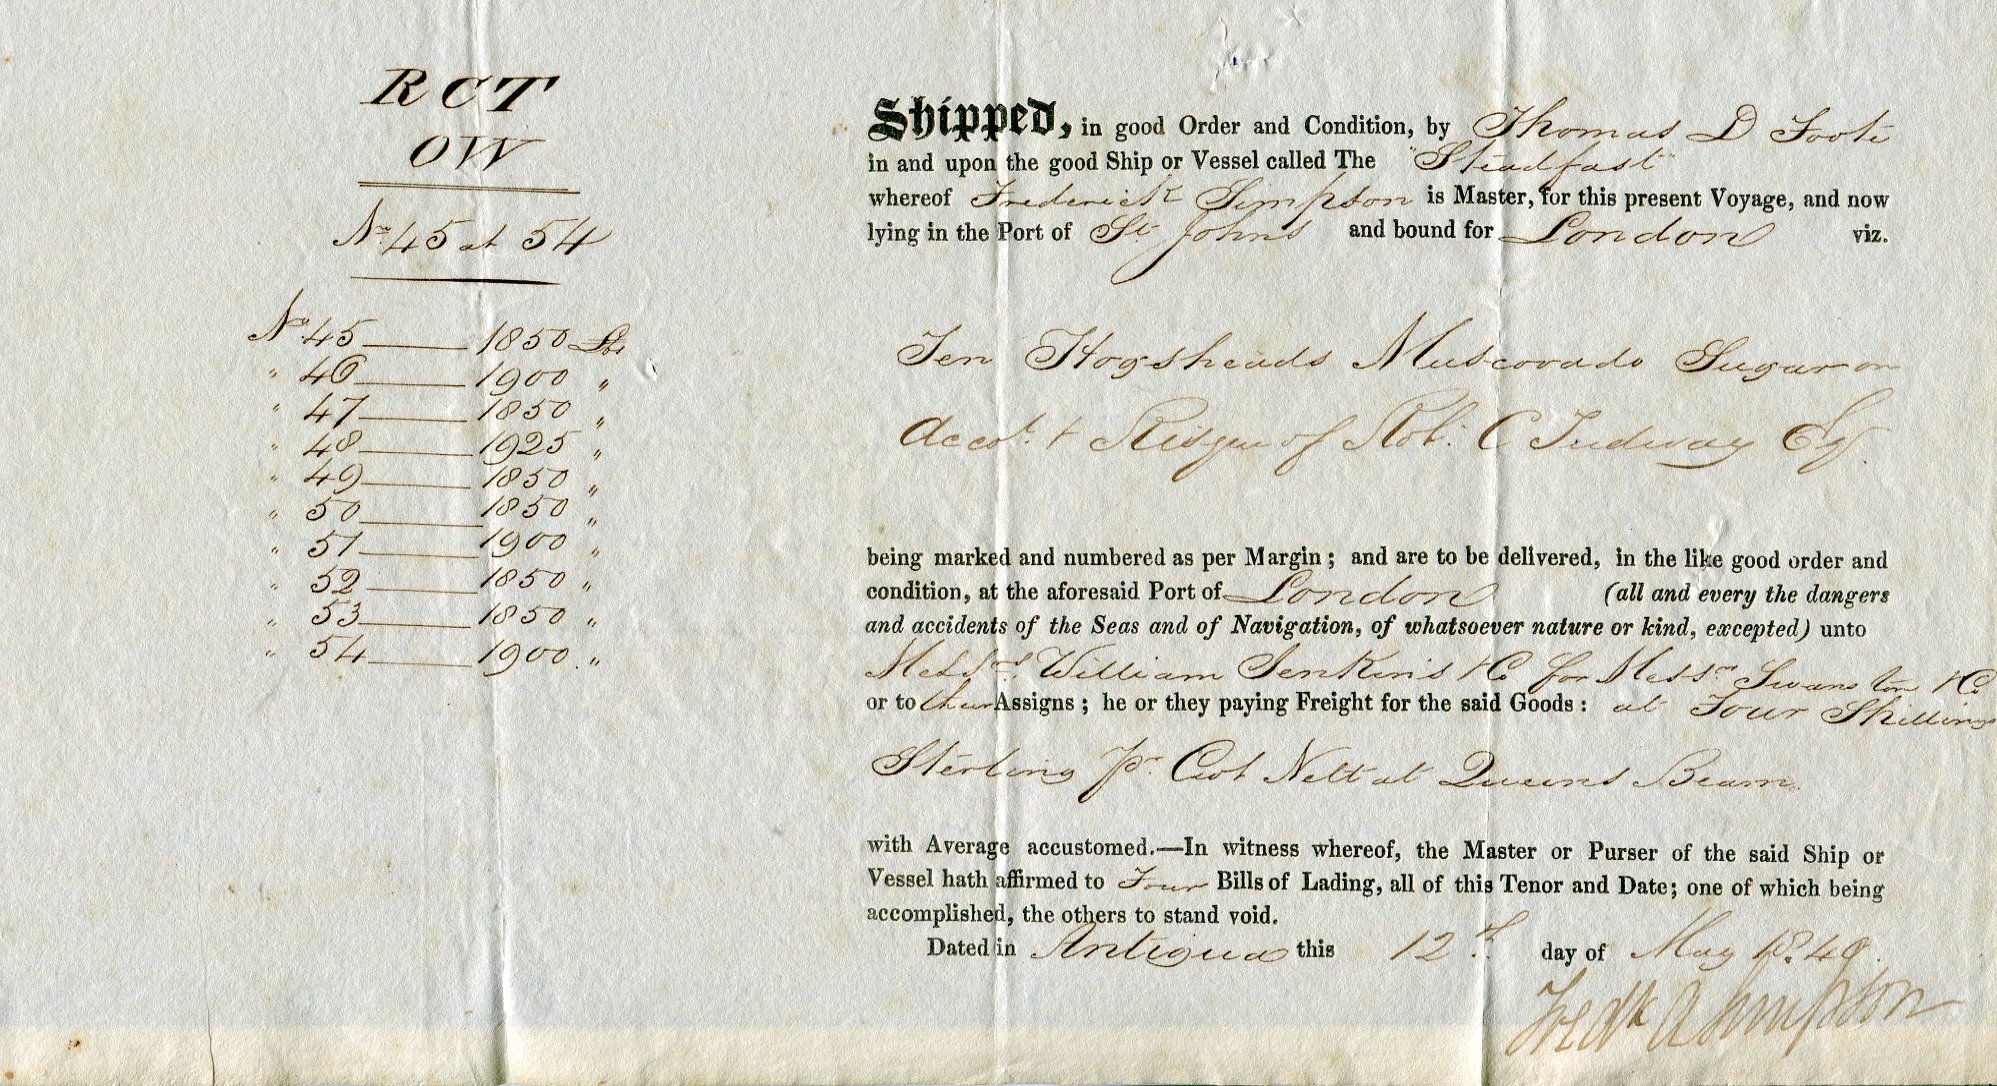 RCT
OW
No 45 at 54
No 45 — 1850 Lbs
" 46 — 1900 "
" 47 — 1850 "
" 48 — 1925 "
" 49 — 1850 "
" 50 — 1850 "
" 51 — 1900 "
" 52 — 1850 "
" 53 — 1850 "
" 54 — 1900 "
Shipped, in good Order and Condition, by Thomas D Foote
in and upon the good Ship or Vessel called The "Steadfast"
whereof Frederick Simpson is Master, for this present Voyage, and now
lying in the Port of St Johns and bound for London viz.
Ten Hogsheads Muscovado Sugar on
Accot. & Risque of Robt. C Tudway Esq.
being marked and numbered as per Margin; and are to be delivered, in the like good order and
condition, at the aforesaid Port of London (all and every the dangers
and accidents of the Seas and of Navigation, of whatsoever nature or kind, excepted) unto
Messrs. William Jenkins & Co for Messrs Swanston & Co.
or to their Assigns; he or they paying Freight for the said Goods: at Four Shillings
Sterling pr. Cwt Nett at Queens Beam.
with Average accustomed.—In witness whereof, the Master or Purser of the said Ship or
Vessel hath affirmed to Four Bills of Lading, all of this Tenor and Date; one of which being
accomplished, the others to stand void.
Dated in Antigua this 12th day of May 1849.
Fredk A Simpson